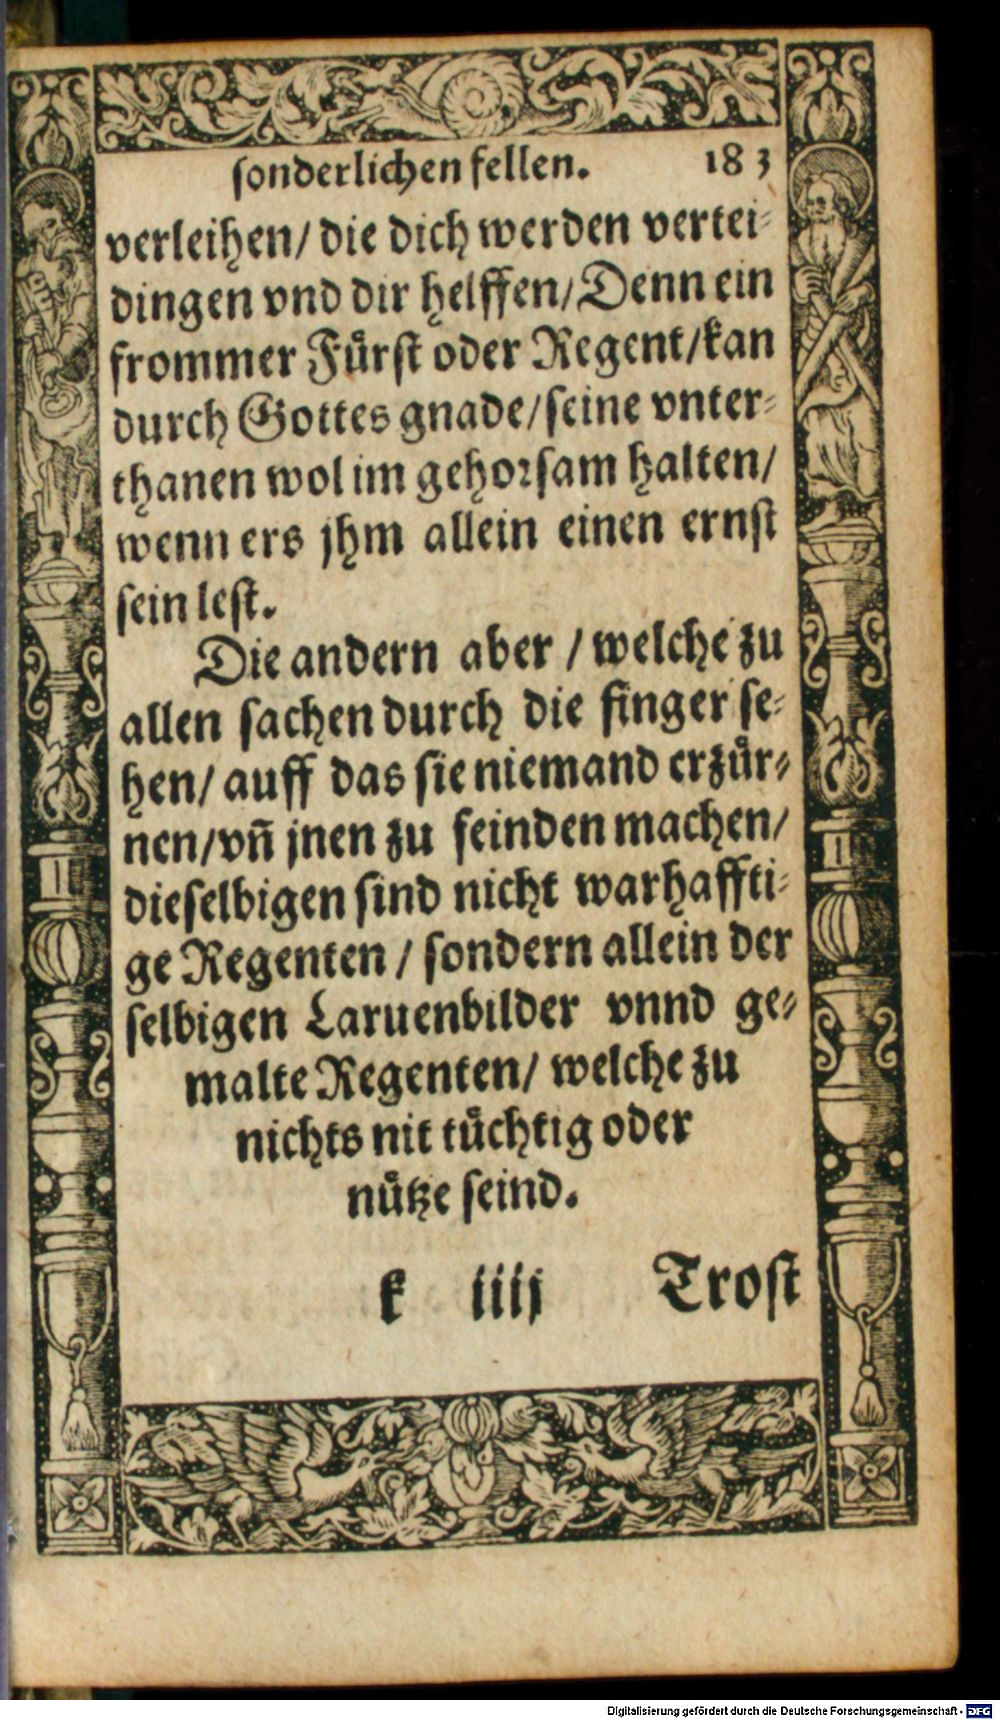 sonderlichen fellen. 183
verleihen/ die dich werden vertei⸗
dingen vnd dir helffen/ Denn ein
frommer Fuͤrst oder Regent/ kan
durch Gottes gnade/ seine vnter⸗
thanen wol im gehorsam halten/
wenn ers jhm allein einen ernst
sein lest.
Die andern aber / welche zu
allen sachen durch die finger se⸗
hen/ auff das sie niemand erzuͤr⸗
nen/ vñ jnen zu feinden machen/
dieselbigen sind nicht warhaffti⸗
ge Regenten / sondern allein der
selbigen Laruenbilder vnnd ge⸗
malte Regenten/ welche zu
nichts nit tuͤchtig oder
nuͤtze seind.
k iiij Trost
Digitalisierung gefördert durch die Deutsche Forschungsgemeinschaft - DFG